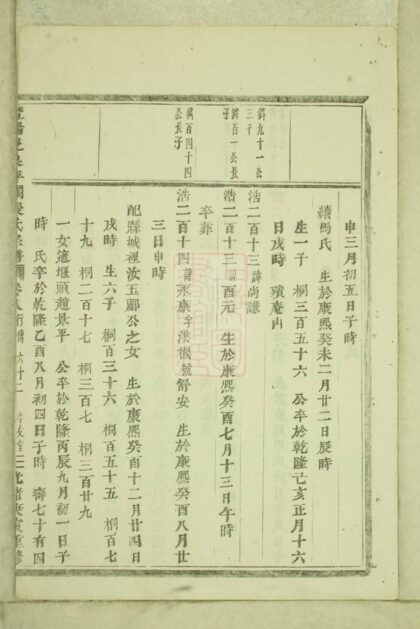 申三月初五日子時
續馬氏 生於康熙癸未二月廿二日辰時
生一子 桐三百五十六 公卒於乾隆乙亥正月十六
日戌時 殯庵山
鑄九十一公
三子
浩二百十二 諱尚謙
鑄百一公長
子
浩二百十三 諱酉元 生於康熙癸酉七月十三日午時
卒葬
鑄百四十四
公長子
浩二百十四 諱永康字洪機號舒安 生於康熙癸酉八月廿
三日申時
配縣城裡汝玉鄺公之女 生於康熙癸酉十二月廿四日
戌時 生六子 桐百三十六 桐百五十五 桐百七
十九 桐二百十七 桐三百七 桐三百廿九
一女適堰頭趙景平 公卒於乾隆丙辰九月初一日子
時 氏卒於乾隆乙酉八月初四日子時 壽七十有四